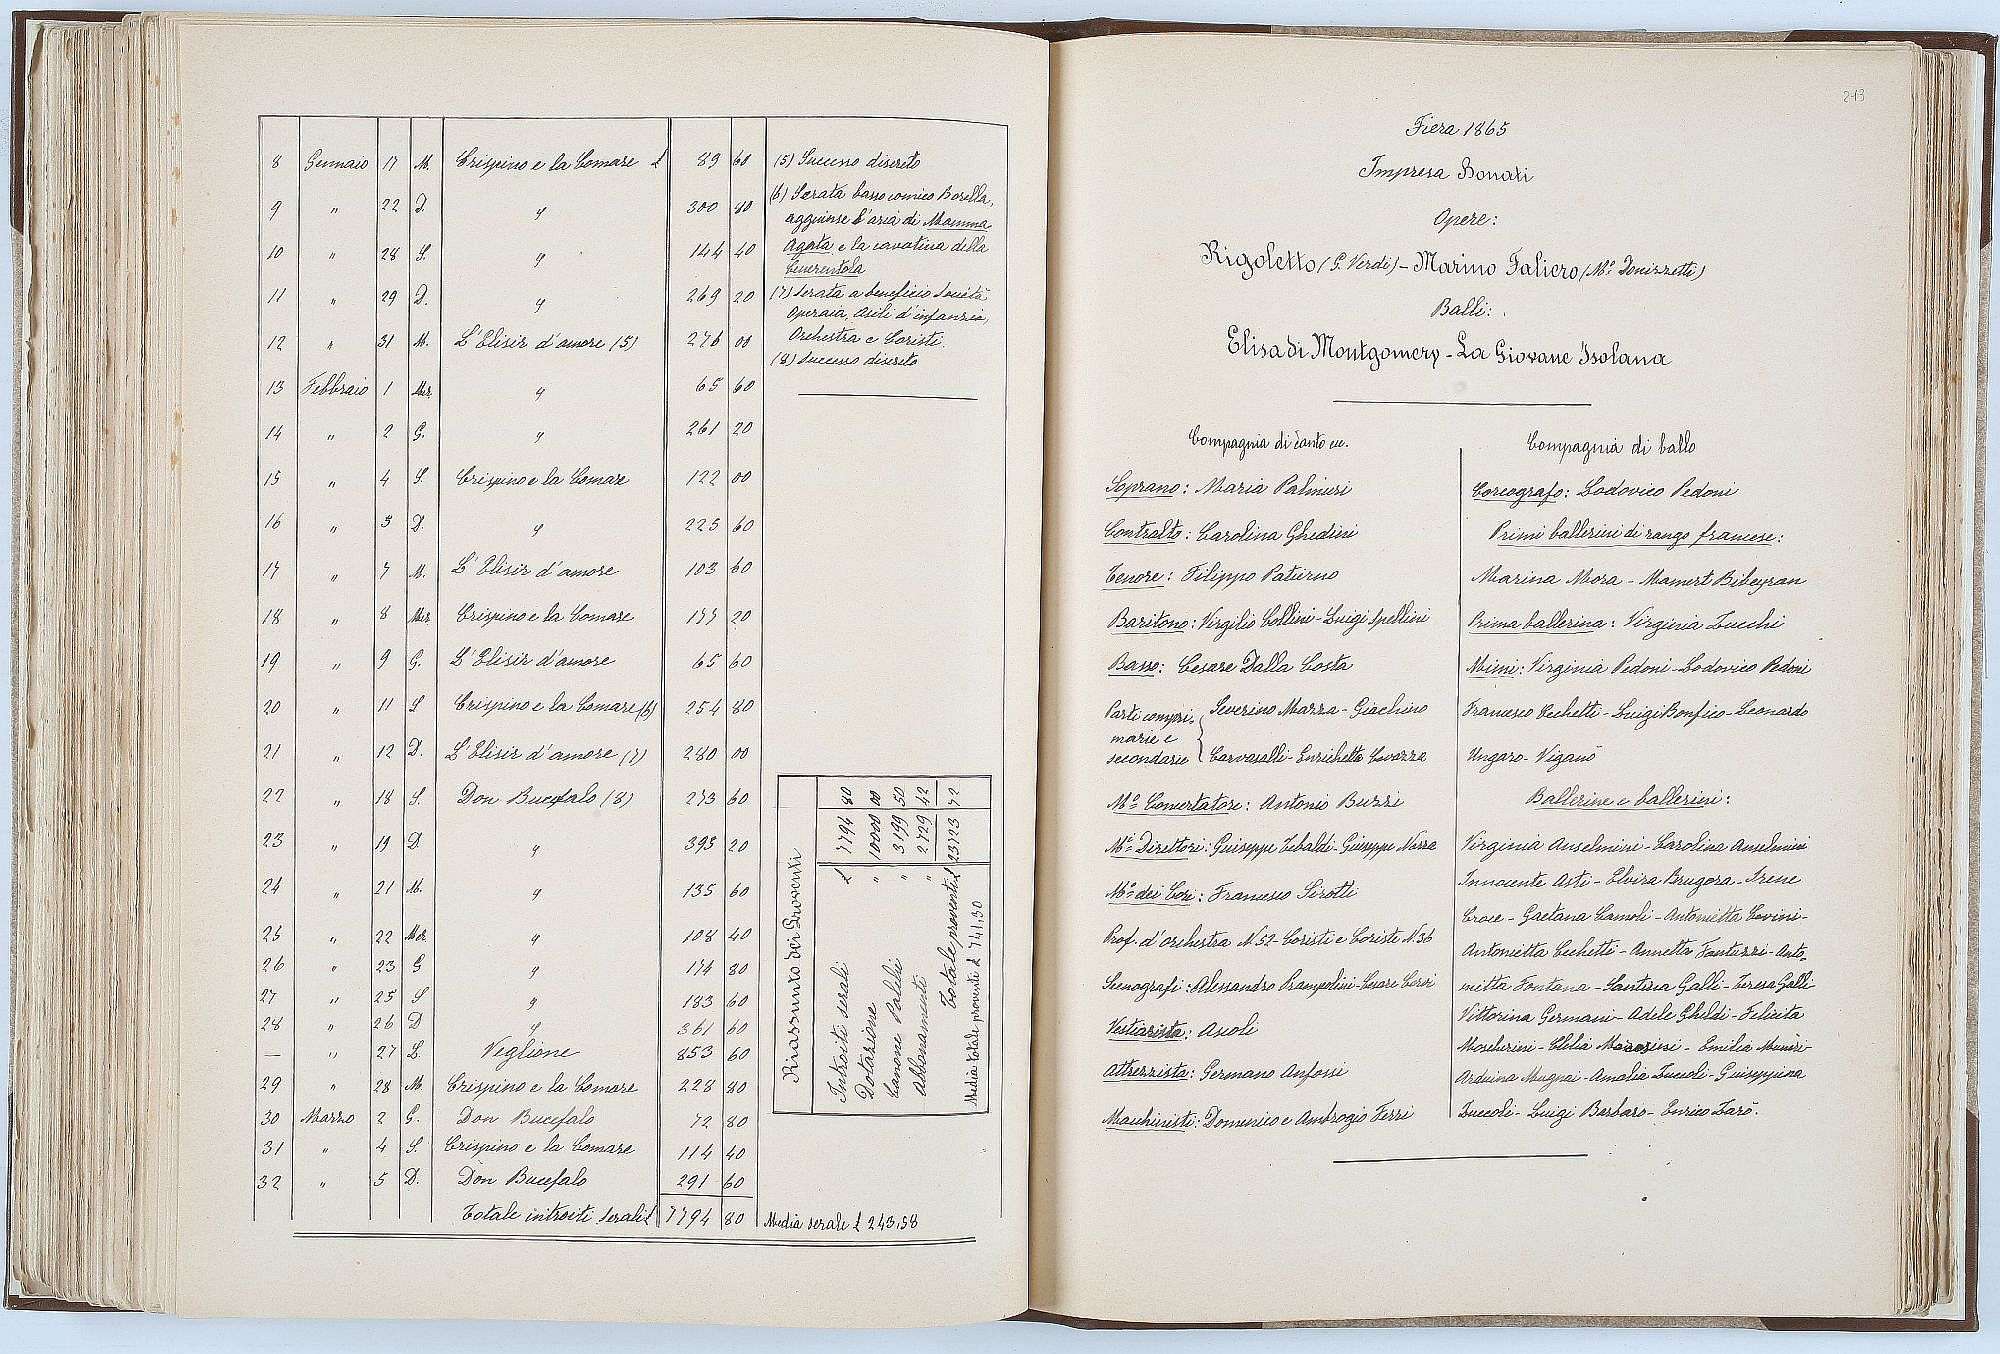 8 Gennaio 17 M. Crispino e la Comare £ 89 60
9 " 22 D. " 300 80
10 " 28 S. " 144 40
11 " 29 D. " 269 20
12 " 31 M. L'Elisir d'amore (5) 276 00
13 Febbraio 1 Mer. " 65 60
14 " 2 G. " 261 20
15 " 4 S. Crispino e la Comare 122 00
16 " 5 D. " 225 60
17 " 7 M. L'Elisir d'amore 103 60
18 " 8 Mer Crispino e la Comare 177 20
19 " 9 G. L'Elisir d'amore 65 60
20 " 11 S Crispino e la Comare (6) 254 80
21 " 12 D. L'Elisir d'amore (7) 280 00
22 " 18 S. Don Bucefalo (8) 273 60
23 " 19 D. " 393 20
24 " 21 M. " 135 60
25 " 22 Mer " 108 40
26 " 23 G " 174 80
27 " 25 S " 183 60
28 " 26 D " 361 60
— " 27 L. Veglione 853 60
29 " 28 M. Crispino e la Comare 228 80
30 Marzo 2 G. Don Bucefalo 72 80
31 " 4 S. Crispino e la Comare 114 40
32 " 5 D. Don Bucefalo 291 60
Totale introiti serali £ 7794 80 Media serale £ 243,58
(5) Successo discreto
(6) Serata basso comico Borella,
aggiunse l'aria di Mamma
Agata e la cavatina della
Cenerentola
(7) Serata a beneficio Società
Operaia, Asili d'infanzia,
Orchestra e Coristi.
(8) Successo discreto
Riassunto dei Proventi
Introiti serali £ 7794 80
Dotazione " 10000 00
Canone Palchi " 3199 50
Abbonamenti " 2729 42
Totale proventi £ 23723 72
Media totale proventi £ 741,30
213
Fiera 1865
Impresa Bonati
Opere:
Rigoletto (G. Verdi) - Marino Faliero (Mº Donizzetti)
Balli:
Elisa di Montgomery - La Giovane Isolana
Compagnia di canto ecc.
Soprano: Maria Palmieri
Contralto: Carolina Ghedini
Tenore: Filippo Paterno
Baritono: Virgilio Collini - Luigi Spellini
Basso: Cesare Dalla Costa
Parti compri-
marie e
secondarie
Severino Mazza - Giachino
Carvasalli - Enrichetta Cavazza
Mº Concertatore: Antonio Buzzi
Mi Direttori: Guiseppe Tebaldi - Giuseppe Nozza
Mº dei Cori: Francesco Sirotti
Prof. d'orchestra N. 52 - Coristi e Coriste N. 36
Scenografi: Alessandro Prampolini - Cesare Corsi
Vestiarista: Ascoli
Attrezzista: Germano Anfossi
Macchinisti: Domenico e Ambrogio Ferri
Compagnia di ballo
Coreografo: Lodovico Pedoni
Primi ballerini di rango francese:
Marina Mora - Mamert Bibeyran
Prima ballerina: Virginia Zucchi
Mimi: Virginia Pedoni - Lodovico Pedoni
Francesco Cechetti - Luigi Bonfico - Leonardo
Ungaro - Viganò
Ballerine e ballerini:
Virginia Anselmini - Carolina Anselmini
Innocente Asti - Elvira Brugora - Irene
Croce - Gaetana Camoli - Antonietta Covini -
Antonietta Cechetti - Annetta Fantuzzi - Anto-
nietta Fontana - Santina Galli - Teresa Galli
Vittorina Germani - Adele Ghildi - Felicita
Moscherini - Clelia Morosini - Emilia Monizi
Arduina Mugnai - Amalia Zuccoli - Guiseppina
Zuccoli - Luigi Barbaro - Enrico Zarò.